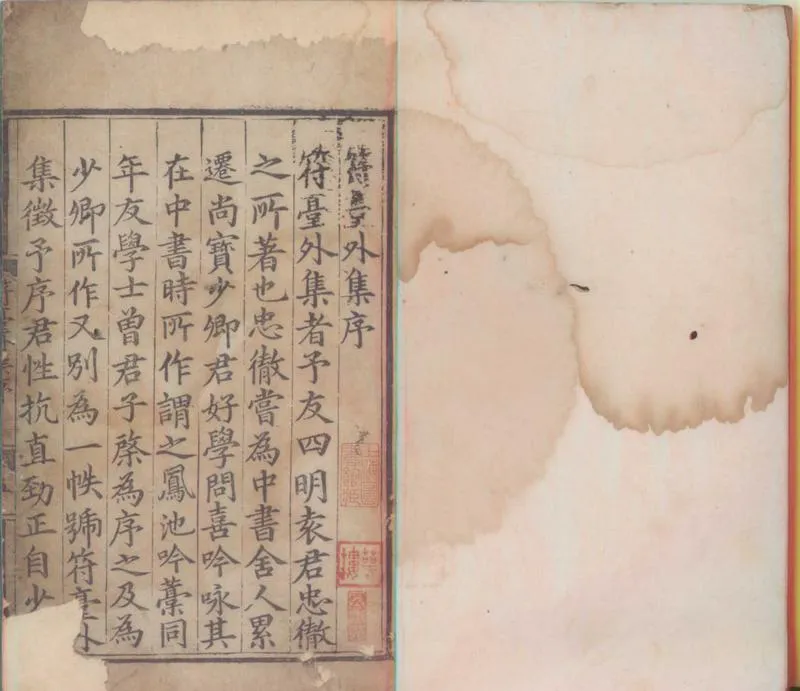 符臺外集序
符臺外集者予友四明袁君忠徹
之所著也忠徹嘗為中書舍人累
遷尚寶少卿君好學問喜吟咏其
在中書時所作謂之鳳池吟藁同
年友學士曾君子棨為序之及為
少卿所作又別為一帙號符臺外
集徵予序君性抗直勁正自少